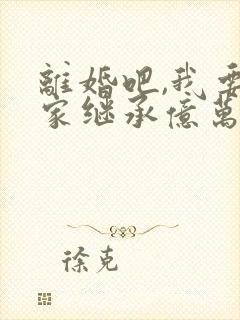 離婚吧,我要
家继承億萬
徐克